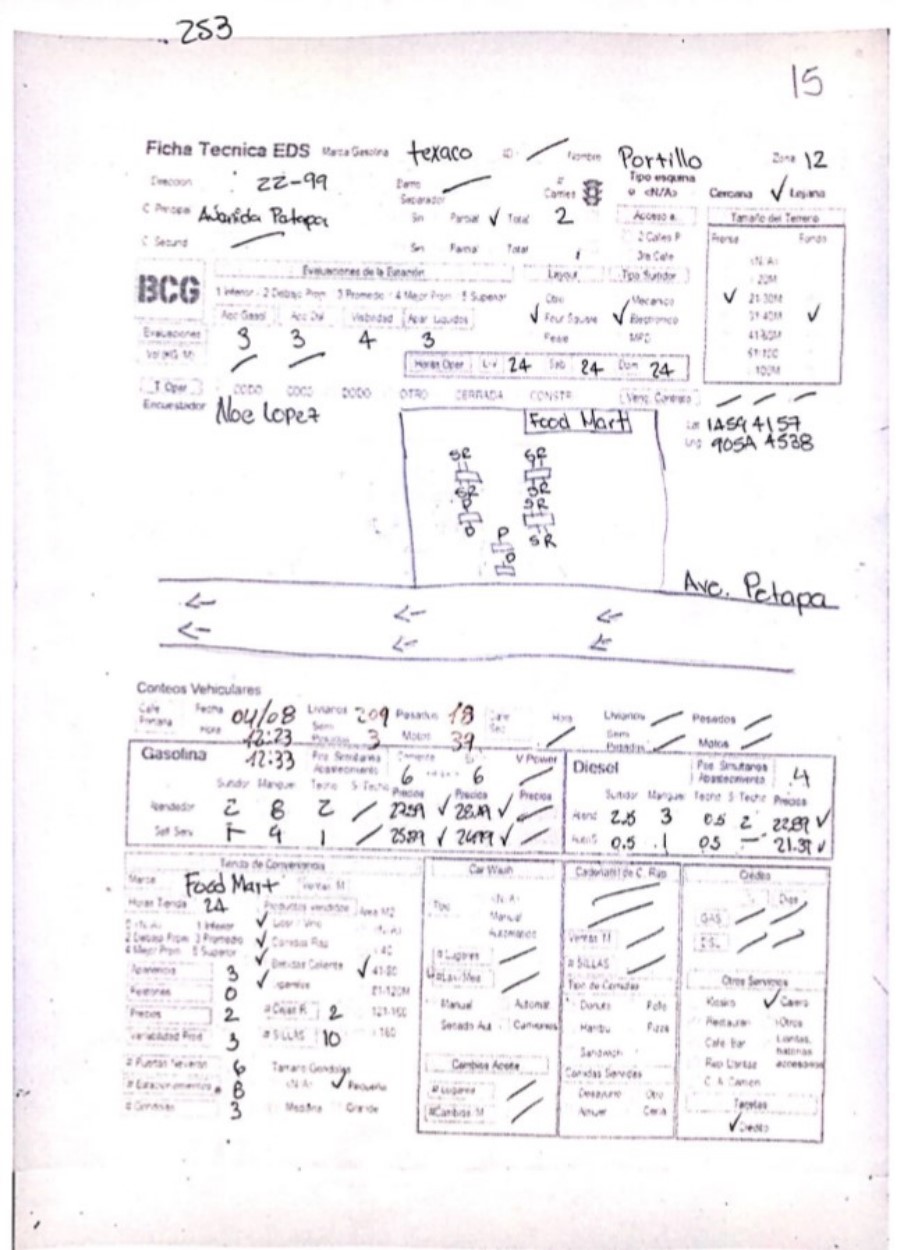 253
15
Ficha Tecnica EDS Marca Gasolina texaco ID Nombre Portillo Zona 12
Direccion 22-99 Barrio # Carriles Tipo esquina <N/A> Cercana ✓ Lejana
C. Principal Avanida Patapa Separador Sin Parcial ✓ Total 2 Acceso a Tamaño del Terreno
C. Secund Sin Parcial Total 2 Calles P Frente Fondo
3ra Calle <N/A>
BCG Evaluaciones de la Estación Layout Tipo Surtidor 20M
1 Inferior 2 Debajo Prom 3 Promedio 4 Mejor Prom 5 Superior Otro Mecanico ✓ 21-30M
Acc Gasol Acc Dsl Visibilidad Apar Liquidos ✓ Four Square ✓ Electronico 31-40M ✓
Evaluaciones 3 3 4 3 MPD 41-60M
Horas Oper L-V 24 Sab 24 Dom 24 61-100
100M
T. Oper CODO COCO DODO OTRO CERRADA CONSTR. Venc. Contrato
Encuestador Noe Lopez
Food Mart
Lat 1454 4157
Lng 905A 4538
SR SR
SR SR
P SR
D SR
P
D
Ave. Petapa
Conteos Vehiculares
Calle Primaria Fecha 04/08 Livianos 209 Pesados 18 Calle Sec Hora Livianos Pesados
Hora 12:23 Semi Pesados 3 Motos 39 Semi Pesados Motos
Gasolina 12:33 Pos. Simultanea Abastecimiento 6 6 V Power Diesel Pos Simultanea Abastecimiento 4
Surtidor Manguer Techo S Techo Precios Precios Precios Surtidor Manguer Techo S Techo Precios
Atendedor 2 8 2 28.19 ✓ Atend 2.5 3 0.5 2 22.89 ✓
Self Serv 4 1 25.89 ✓ ✓ AutoS 0.5 1 0.5 21.39 ✓
Tienda de Conveniencia Car Wash Cadena(s) de C. Rap Credito
Marca Food Mart Ventas M Dias
Horas Tienda 24 Productos vendidos Area M2 Tipo <N/A> GAS
<N/A> 1 Inferior ✓ Licor / Vino <N/A> Manual Ventas M DSL
2 Debajo Prom 3 Promedio ✓ Comidas Rap 40 Automatico # SILLAS
4 Mejor Prom 5 Superior ✓ Bebidas Caliente ✓ 41-80 # Lugares Tipo de Comidas Otros Servicios
Apariencia 3 ✓ 81-120M Donuts Pollo Kiosko ✓ Cajero
0 # Cajas R 2 121-160 Manual Automat Hambu Pizza Restauran Otros
Precios 2 # SILLAS 10 160 Camiones Sandwich Cafe Bar Llantas, baterias accesorios
Variabilidad Prod 3 Rep Llantas
# Puertas Neveras 6 Tamaño Gondolas Cambios Aceite Comidas Servidas C. A. Camion
# Estacionamientos 8 <N/A> ✓ Pequeña # Lugares Desayuno Otro Tarjetas
# Gondolas 3 Mediana Grande #Cambios M Almuer Cena ✓ Credito